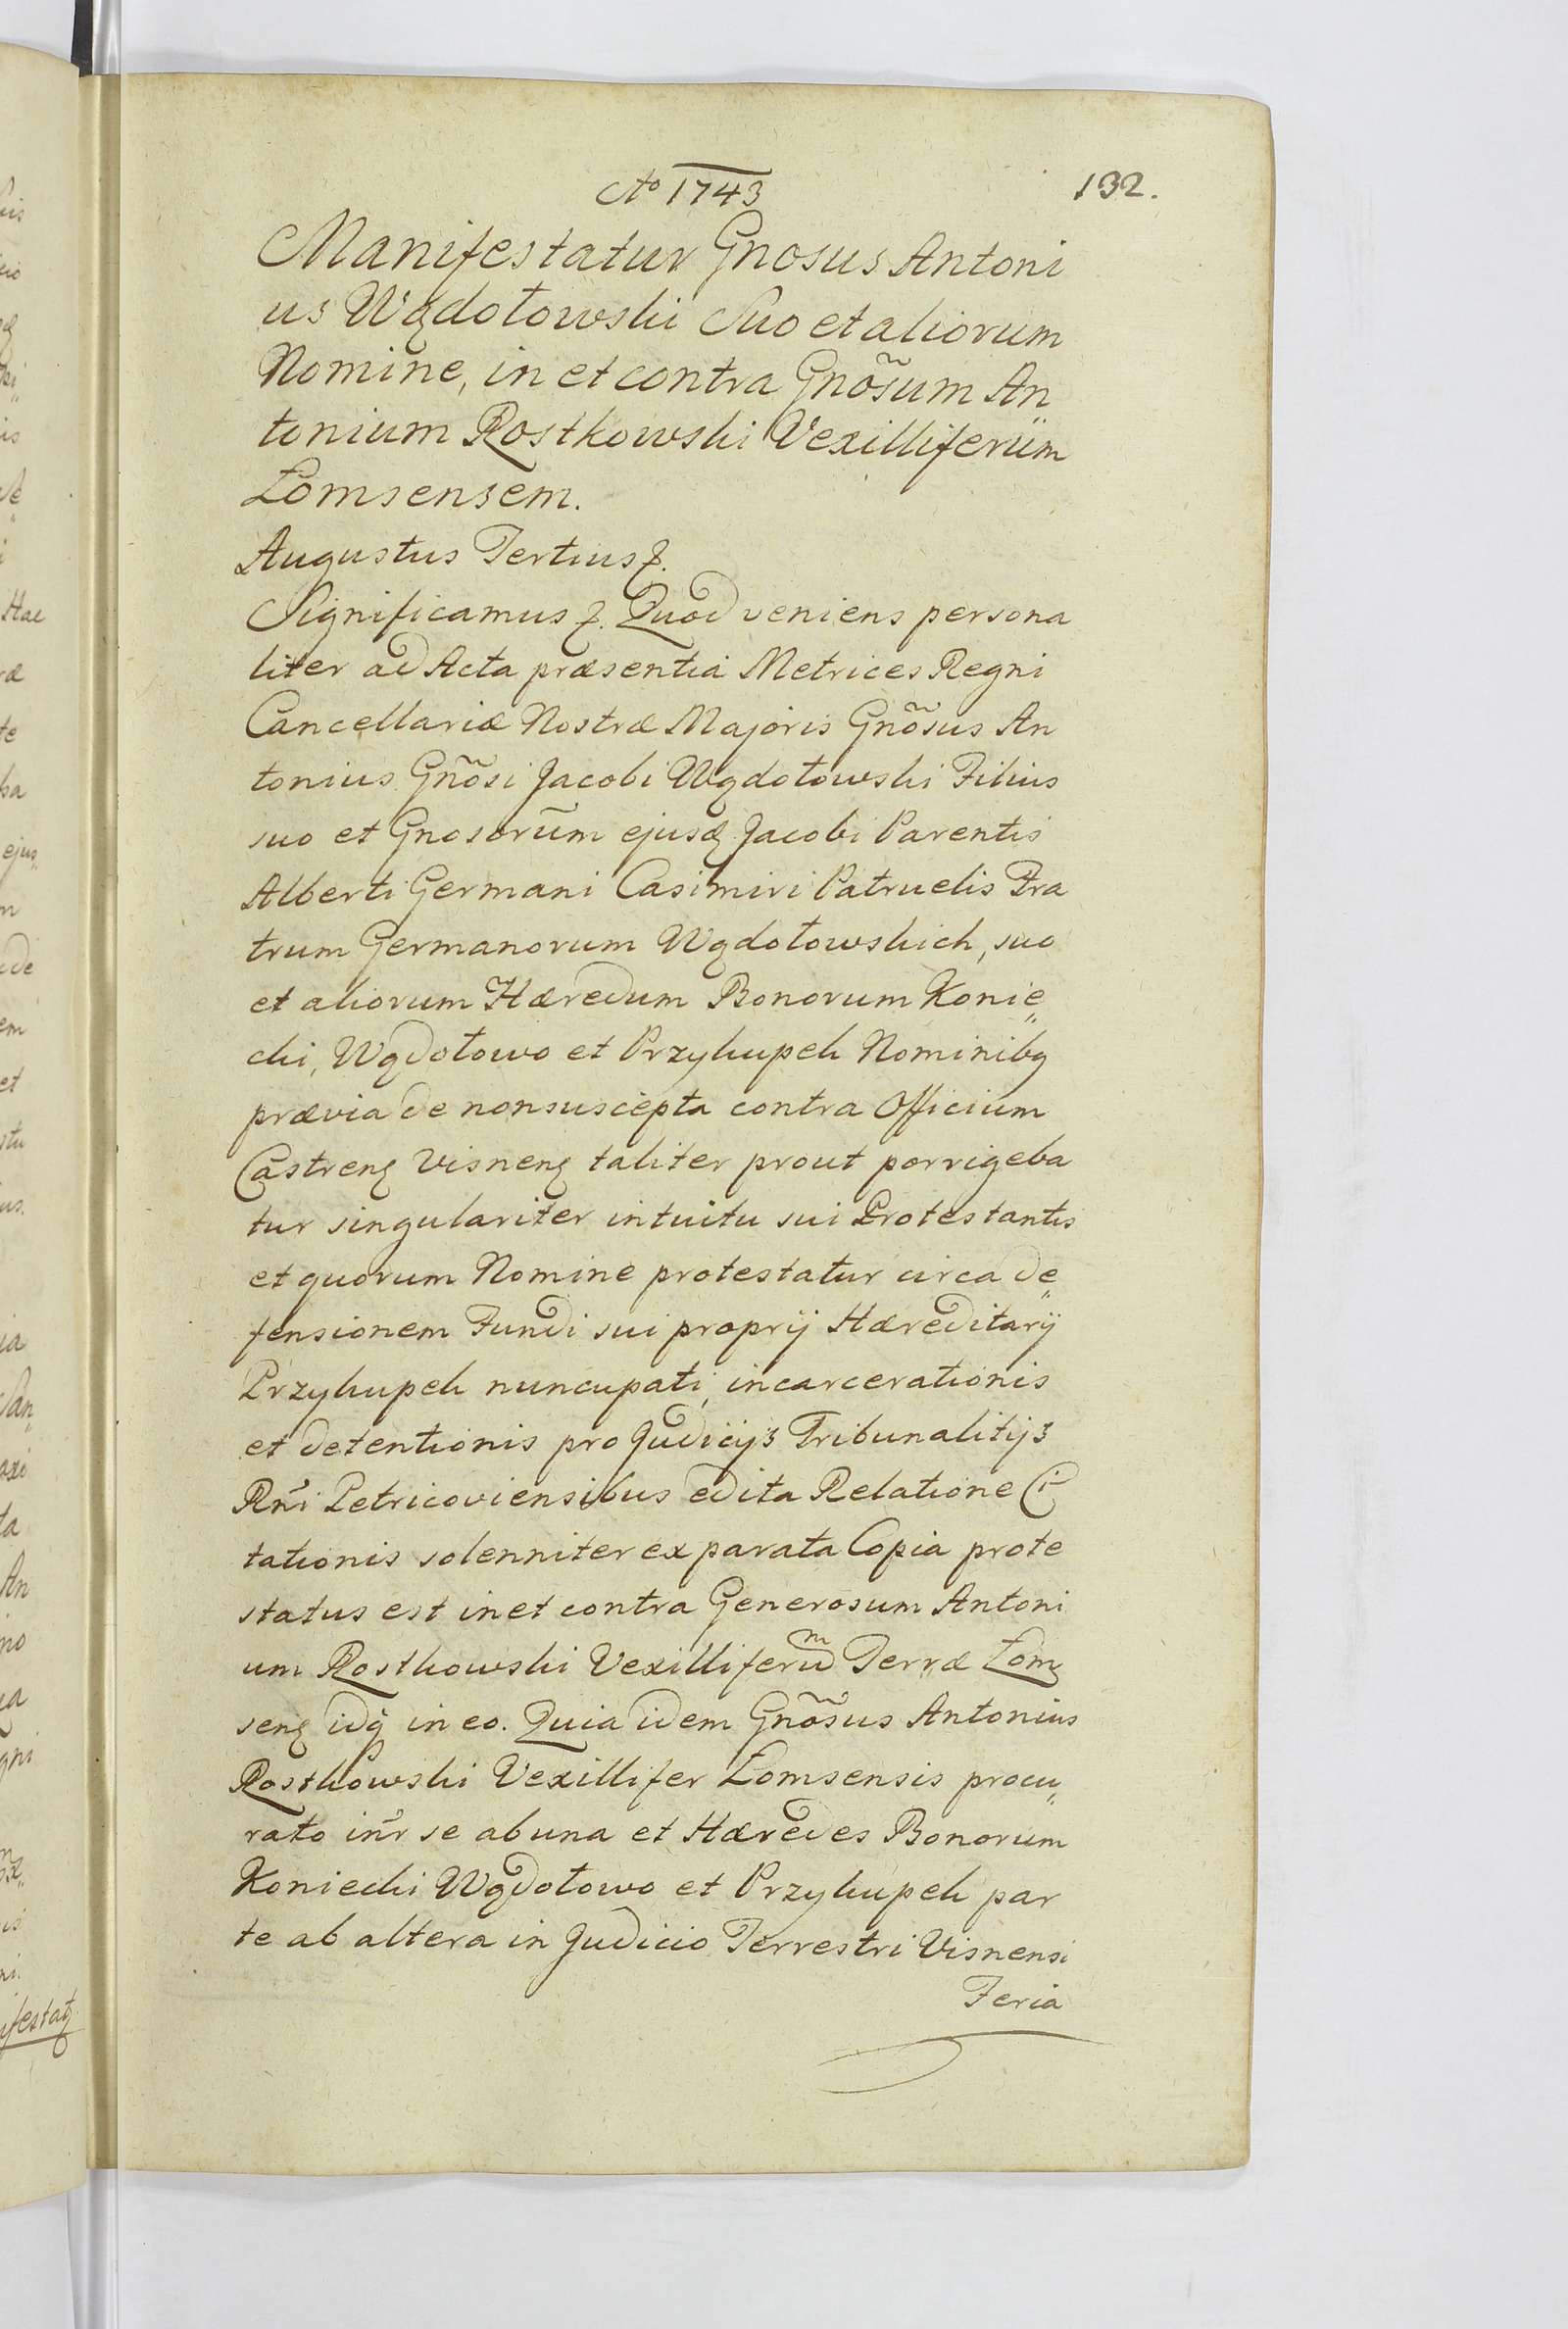 Ao 1743
132.
Manifestatur Gnosus Antoni
us Wądołowski Suo et aliorum
Nomine, in et contra Gnõsum An
tonium Rostkowski Vexilliferum
Łomsensem.
Augustus Tertius &.
Significamus &. Quod veniens persona
liter ad Acta præsentia Metrices Regni
Cancellariæ Nostræ Majoris Gnõsus An
tonius Gnõsi Jacobi Wądołowski Filius
suo et Gnosorum ejusq Jacobi Parentis
Alberti Germani Casimiri Patruelis Fra
trum Germanorum Wądołowskich, suo
et aliorum Hæredum Bonorum Konie„
cki, Wądołowo et Przykupek Nominibq
prævia de non suscepta contra Officium
Castrenq Visnenq taliter prout porrigeba
tur singulariter intuitu sui Protestantis
et quorum Nomine protestatur circa de„
fensionem Fundi sui proprij Hæreditarij
Przykupek nuncupati, incarcerationis
et detentionis pro Judicijs Tribunalitijs
Rni Petricoviensibus edita Relatione Ci
tationis solenniter ex parata Copia prote
status est in et contra Generosum Antoni
um Rostkowski Vexilliferum Terræ Łom
senq idq in eo. Quia idem Gnõsus Antonius
Rostkowski Vexillifer Łomsensis procu„
rato inr se ab una et Hæredes Bonorum
Koniecki Wądołowo et Przykupek par
te ab altera in Judicio Terrestri Visnensi
Feria
Hac
te
ba
ejus„
m
de
em
et
stu
us.
ia
ta
An
no